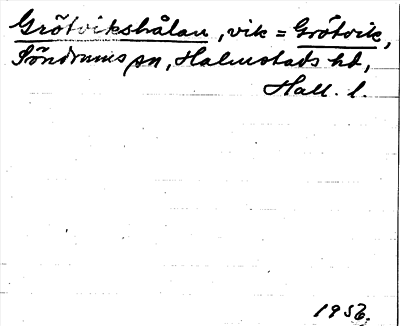 Grötvikshålan, vik = Grötvik,
Söndrums sn, Halmstads hd,
Hall. l.
1956.